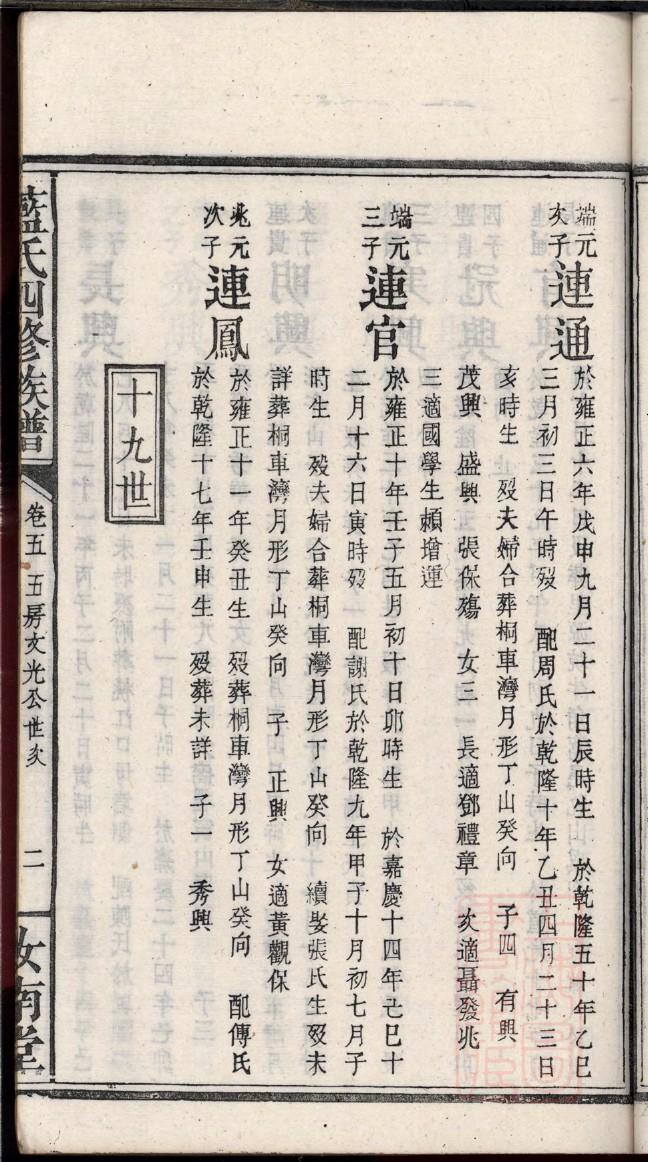 端元
次子
連通
於雍正六年戊申九月二十一日辰時生 於乾隆五十年乙巳
三月初三日午時歿 配周氏於乾隆十年乙丑四月二十三日
亥時生 歿夫婦合葬桐車灣月形丁山癸向 子四 有興
茂興 盛興 張保殤 女三 長適鄧禮章 次適聶發兆
三適國學生賴增運
端元
三子
連官
於雍正十年壬子五月初十日卯時生 於嘉慶十四年己巳十
二月十六日寅時歿 配謝氏於乾隆九年甲子十月初七月子
時生 歿夫婦合葬桐車灣月形丁山癸向 續娶張氏生歿未
詳葬桐車灣月形丁山癸向 子 正興 女適黃觀保
兆元
次子
連鳳
於雍正十一年癸丑生 歿葬桐車灣月形丁山癸向 配傅氏
於乾隆十七年壬申生 歿葬未詳 子一 秀興
十九世
藍氏四修族譜
卷五 五房文光公世次
二
汝南堂